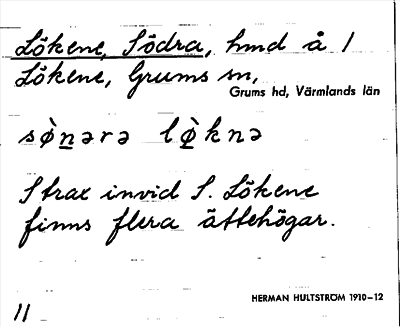 Lökene, Södra, hmd å 1
Lökene, Grums sn,
Grums hd, Värmlands län
sø̀nərə lø̀knə
Strax invid S. Lökene
finns flera ättehögar.
HERMAN HULTSTRÖM 1910-12
11